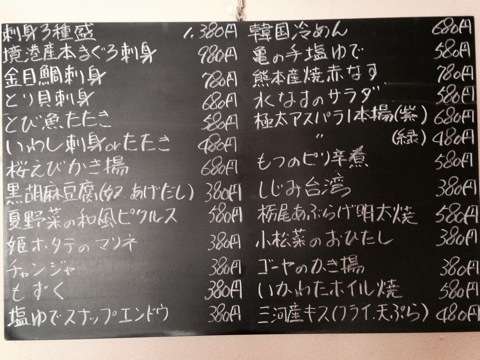 刺身3種盛 1,380円
境港産本まぐろ刺身 980円
金目鯛刺身 780円
とり貝刺身 680円
とび魚たたき 580円
いわし刺身orたたき 480円
桜えびかき揚 680円
黒胡麻豆腐(冷ヌ あげだし) 380円
夏野菜の和風ピクルス 580円
姫ホタテのマリネ 380円
チャンジャ 380円
もずく 380円
塩ゆでスナップエンドウ 380円
韓国冷めん 680円
亀の手塩ゆで 580円
熊本産焼赤なす 780円
水なすのサラダ 580円
極太アスパラ1本揚(紫) 680円
〃 (緑) 480円
もつのピリ辛煮 580円
しじみ台湾 380円
栃尾あぶらげ明太焼 580円
小松菜のおひたし 380円
ゴーヤのかき揚 380円
いかわたホイル焼 580円
三河産キス(フライ、天ぷら) 480円